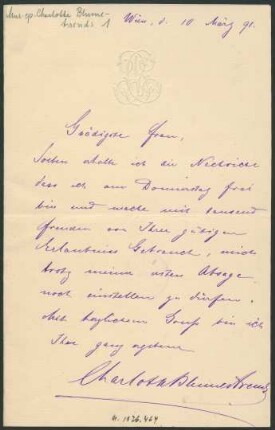 Mus. ep. Charlotte Blume-
Arends 1
Wien, d. 10 März 91.
Gnädigste Frau,
Soeben erhalte ich die Nachricht
dass ich am Donnerstag frei
bin und mache mit tausend
Freuden von Ihrer gütigen
Erlaubniss Gebrauch, mich
trotz meiner ersten Absage
noch einstellen zu dürfen.
Mit herzlichem Gruss bin ich
Ihre ganz ergebene
Charlotte Blume Arends